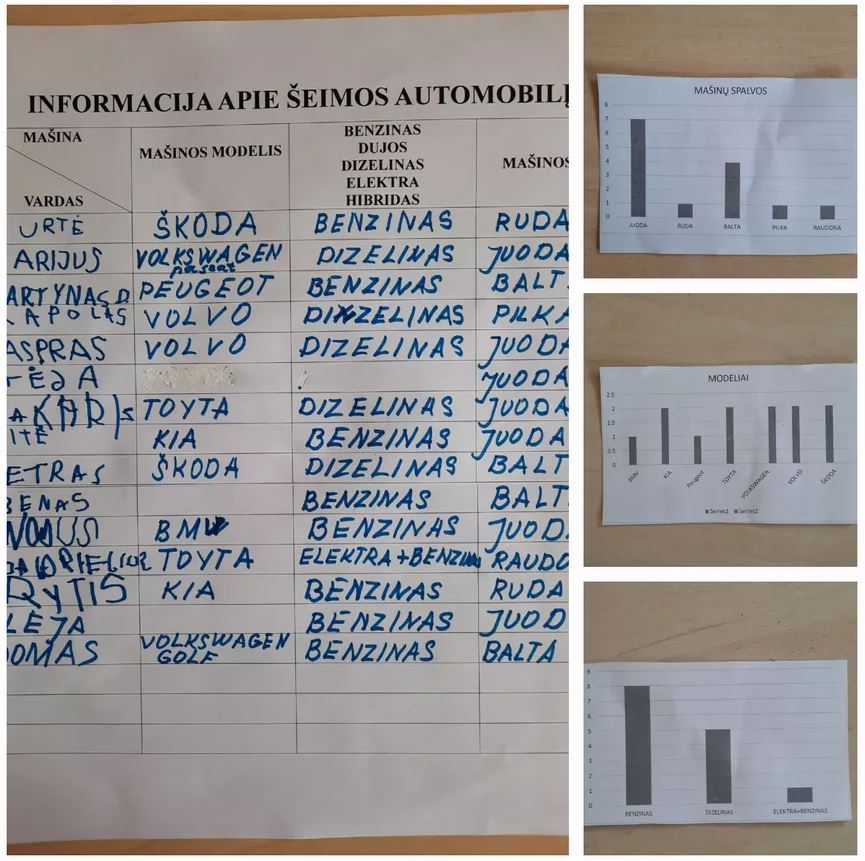 INFORMACIJA APIE ŠEIMOS AUTOMOBILĮ
MAŠINA
VARDAS
MAŠINOS MODELIS
BENZINAS
DUJOS
DIZELINAS
ELEKTRA
HIBRIDAS
MAŠINOS
URTĖ ŠKODA BENZINAS RUDA
ARIJUS VOLKSWAGEN passat DIZELINAS JUODA
ARTYNAS D PEUGEOT BENZINAS BALT
APOLAS VOLVO DIZELINAS PILKA
ASPRAS VOLVO DIZELINAS JUODA
ĖJA JUODA
AKARIS TOYTA DIZELINAS JUODA
ITĖ KIA BENZINAS JUODA
ETRAS ŠKODA DIZELINAS BALT
BENAS BENZINAS BALT
BMW BENZINAS JUOD
TOYTA ELEKTRA+BENZINAS RAUDO
RYTIS KIA BENZINAS RUDA
LĖJA BENZINAS JUOD
DOMAS VOLKSWAGEN GOLF BENZINAS BALTA
MAŠINŲ SPALVOS
8
7
6
5
4
3
2
1
0
JUODA RUDA BALTA PILKA RAUDONA
MODELIAI
2.5
2
1.5
1
0.5
0
BMV KIA Peugeot TOYTA VOLKSWAGEN VOLVO ŠKODA
Series1 Series2
9
8
7
6
5
4
3
2
1
0
BENZINAS DIZELINAS ELEKTRA+BENZINAS